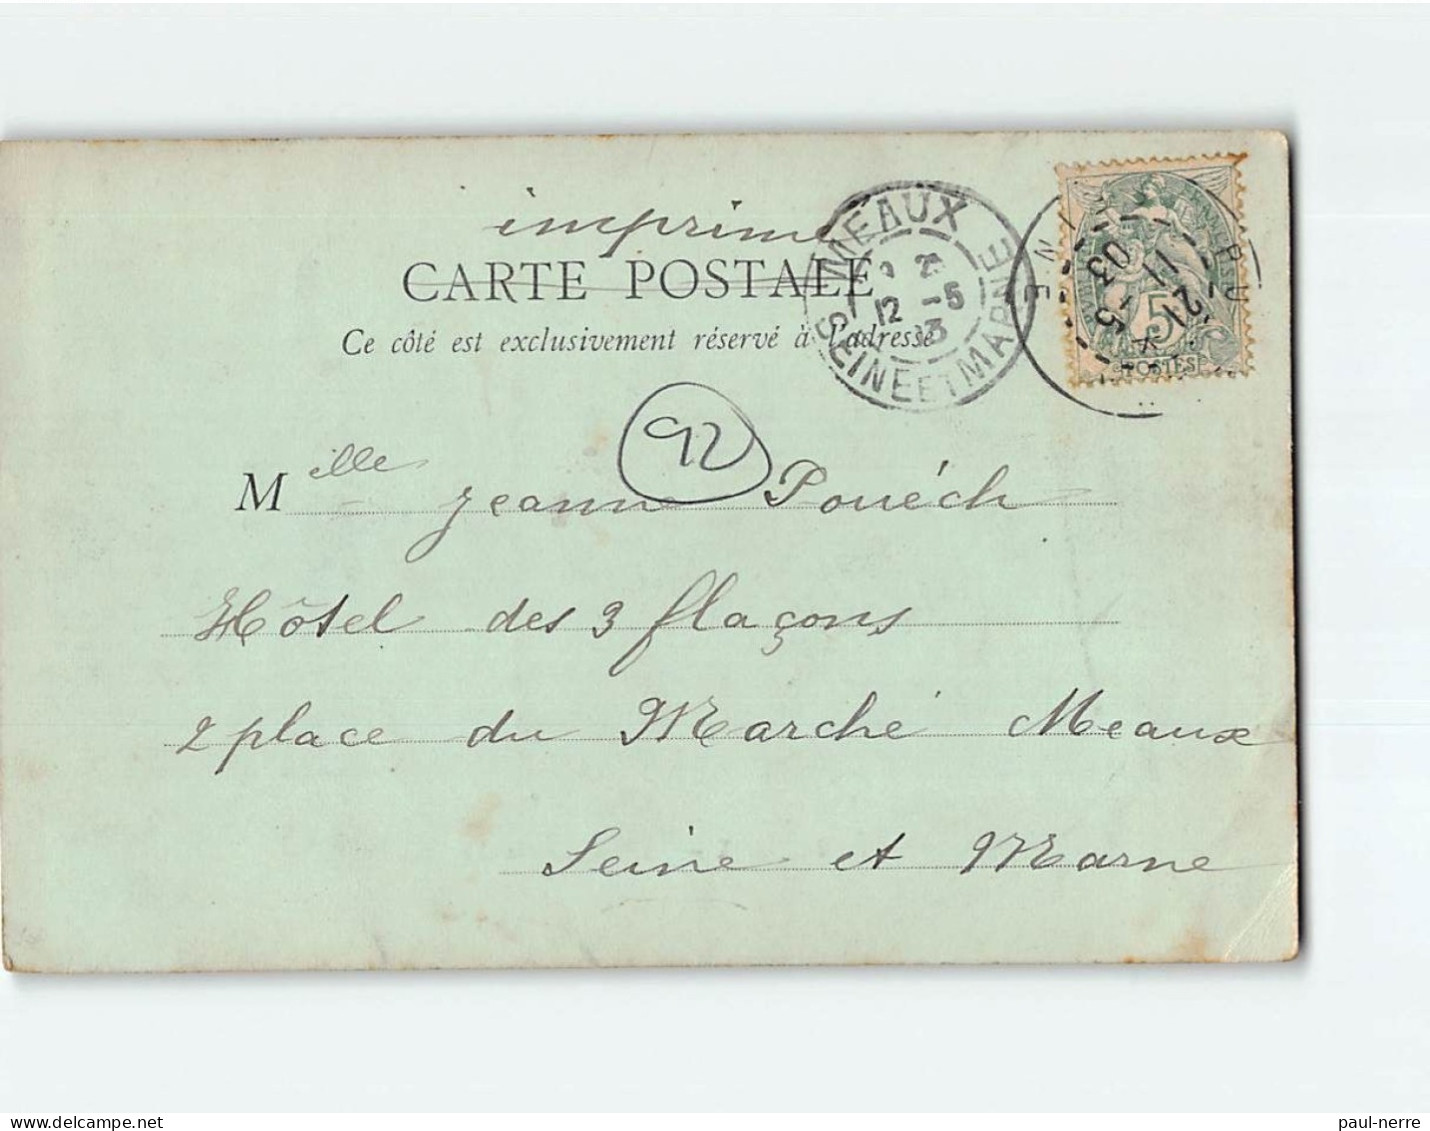 imprimé
CARTE POSTALE
Ce côté est exclusivement réservé à l'adresse
MEAUX
12 -5
SEINE ET MARNE
11 -5
03
5
POSTES
92
Mille Jeanne Pouéch
Hôtel des 3 flaçons
2 place du Marché Meaux
Seine et Marne
paul-nerre